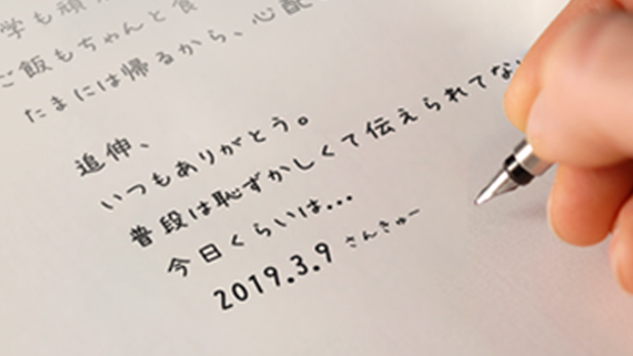 学も頑
ご飯もちゃんと食
たまには帰るから、心配
追伸、
いつもありがとう。
普段は恥ずかしくて伝えられてな
今日くらいは...
2019.3.9 さんきゅー